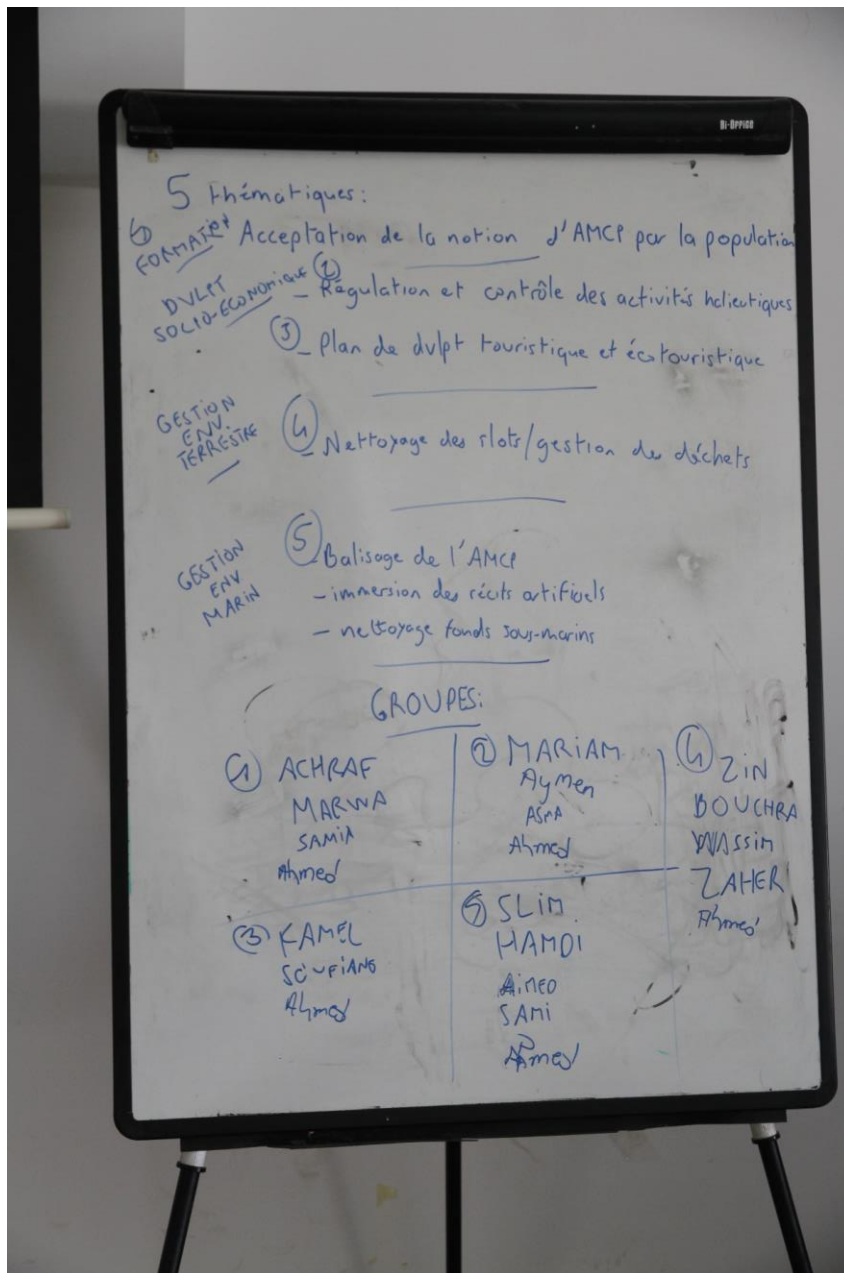 Bi-Office
5 thématiques :
① FORMATION Acceptation de la notion d'AMCP par la population
DVLPT SOCIO-ECONOMIQUE
② - Régulation et contrôle des activités halieutiques
③ - Plan de dvlpt touristique et écotouristique
GESTION ENV. TERRESTRE
④ - Nettoyage des ilots/gestion des déchets
GESTION ENV MARIN
⑤ - Balisage de l'AMCP
- immersion des récifs artificiels
- nettoyage fonds sous-marins
GROUPES:
① ACHRAF
MARWA
SAMIA
Ahmed
② MARIAM
Aymen
ASMA
Ahmed
④ ZIN
BOUCHRA
WASSIM
ZAHER
Ahmed
③ KAMEL
SOUFIANE
Ahmed
⑤ SLIM
HAMDI
SAMI
Ahmed